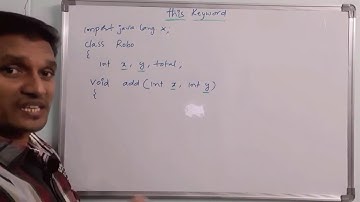 this Keyword
import java lang x;
class Robo
{
int x, y, total;
void add (int x, int y)
{